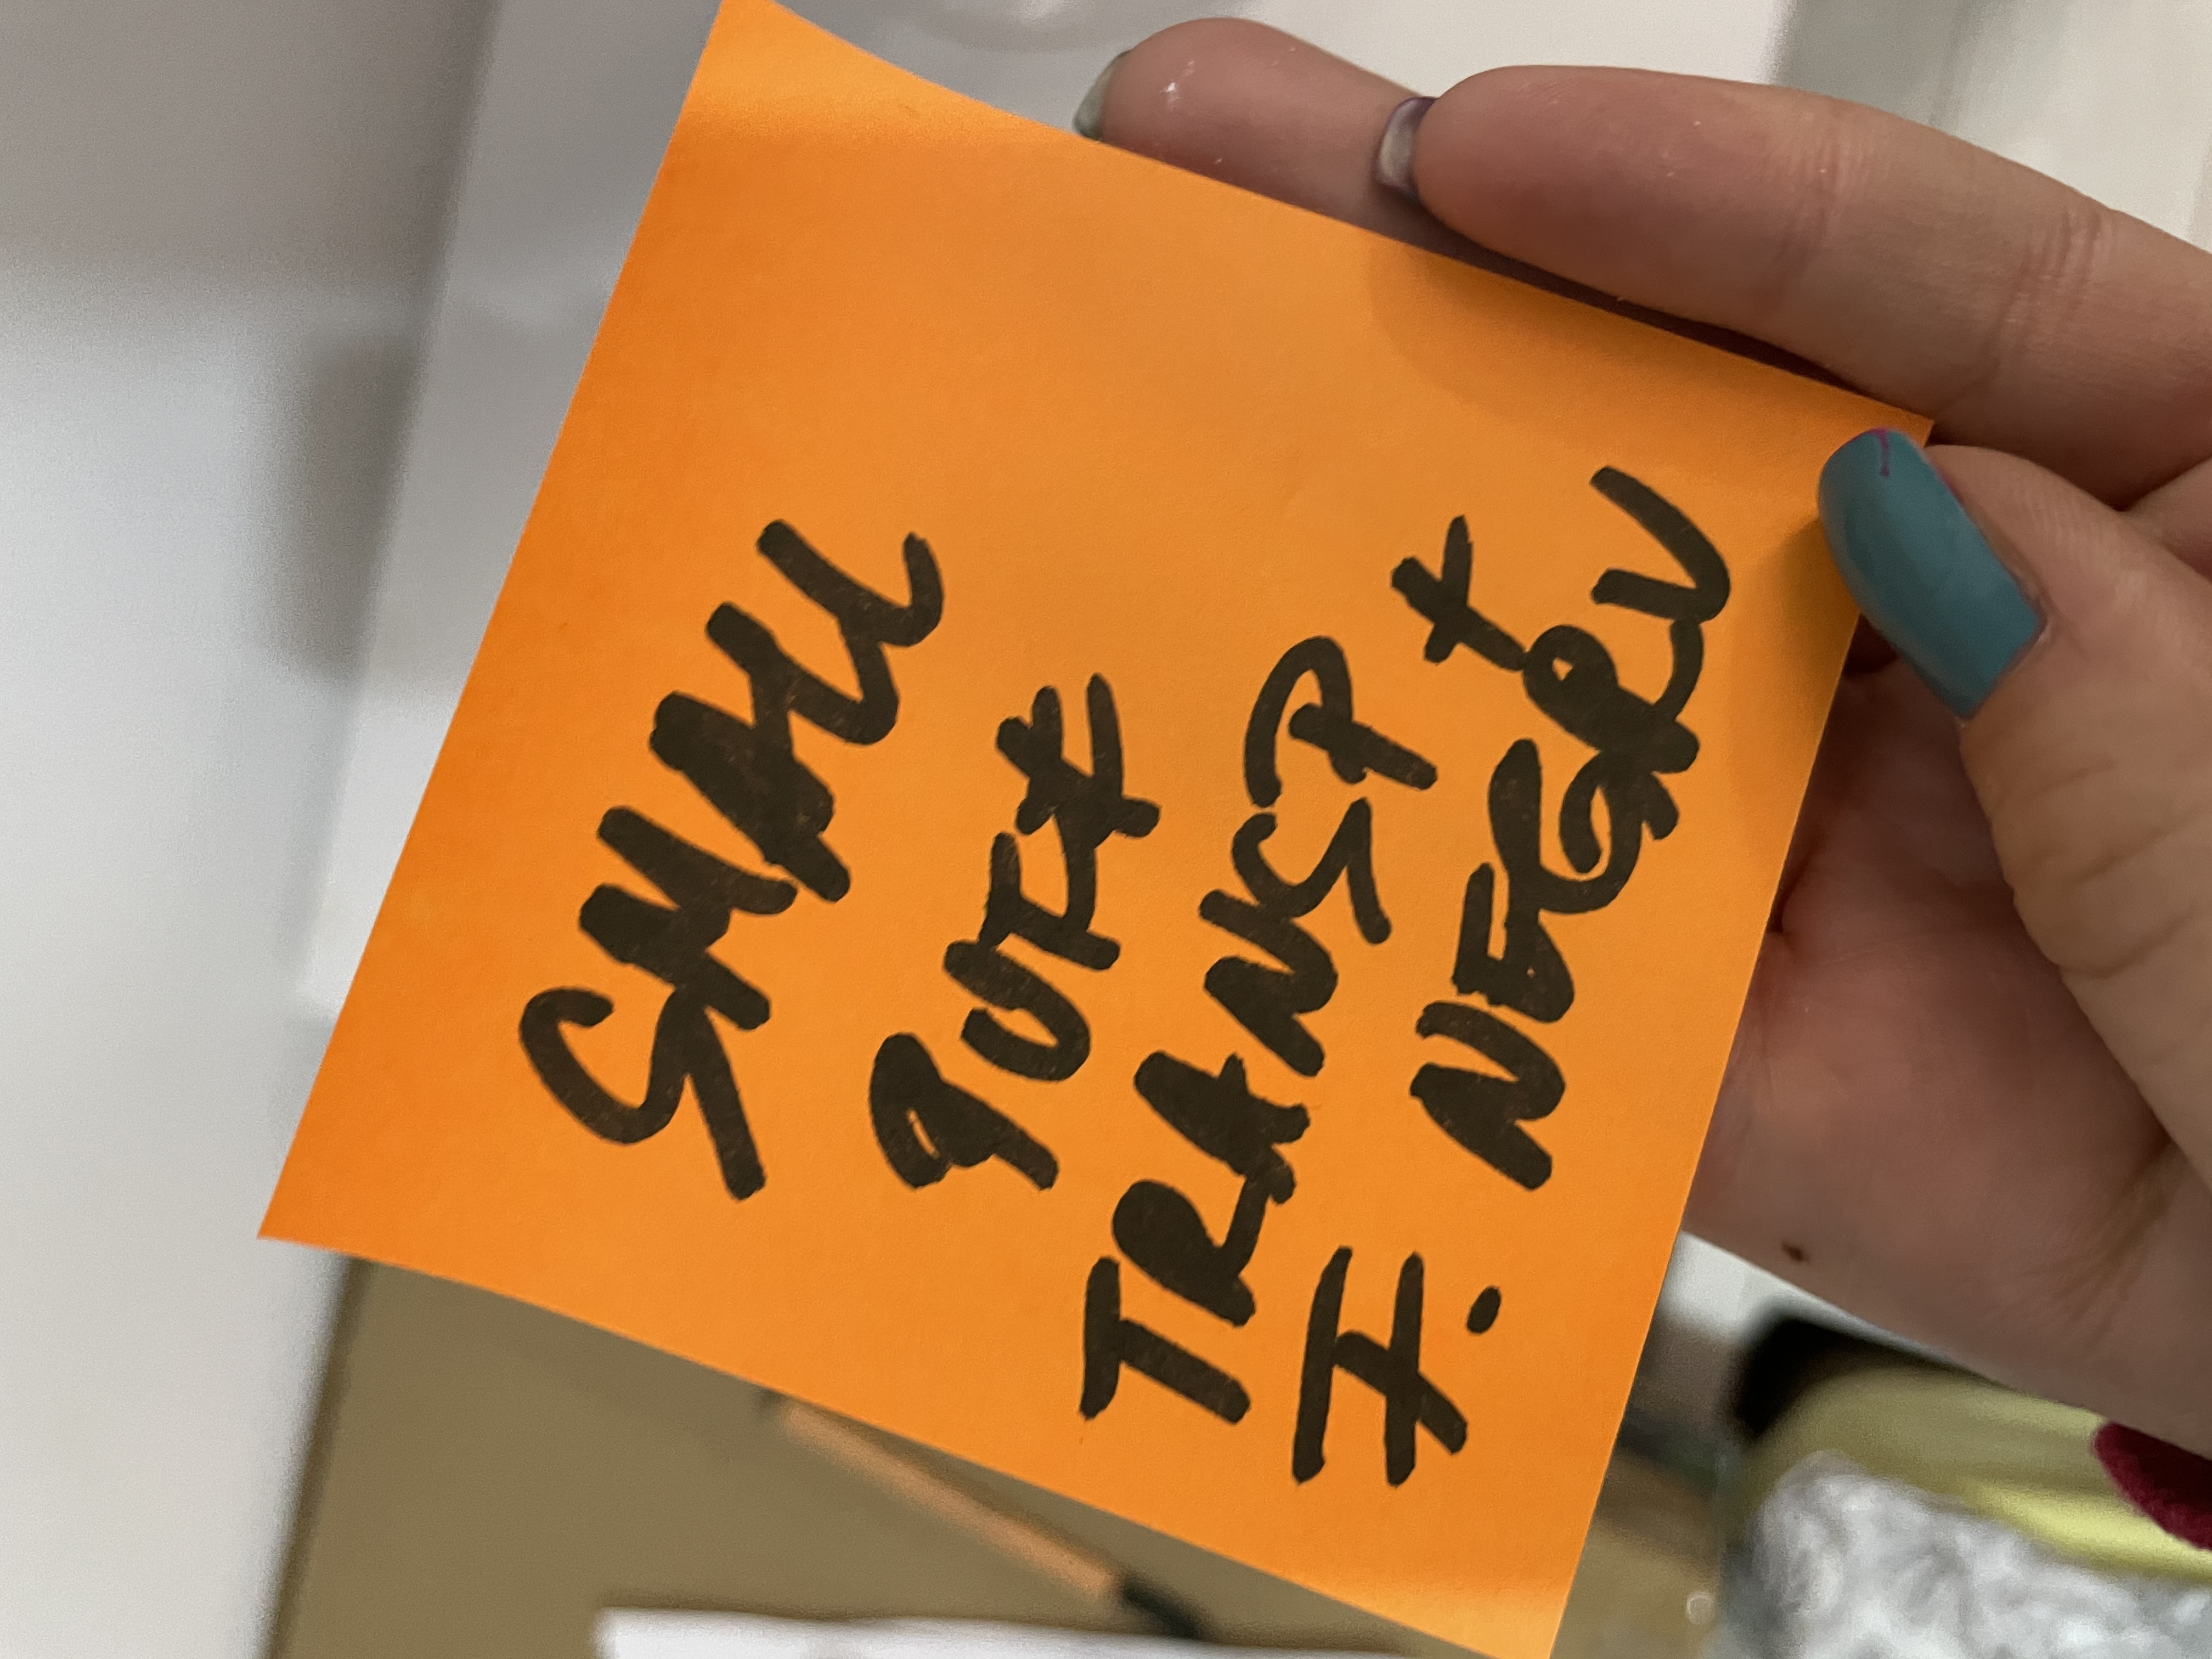 SMALL
PUFF
TRANSP +
F. NEGRU